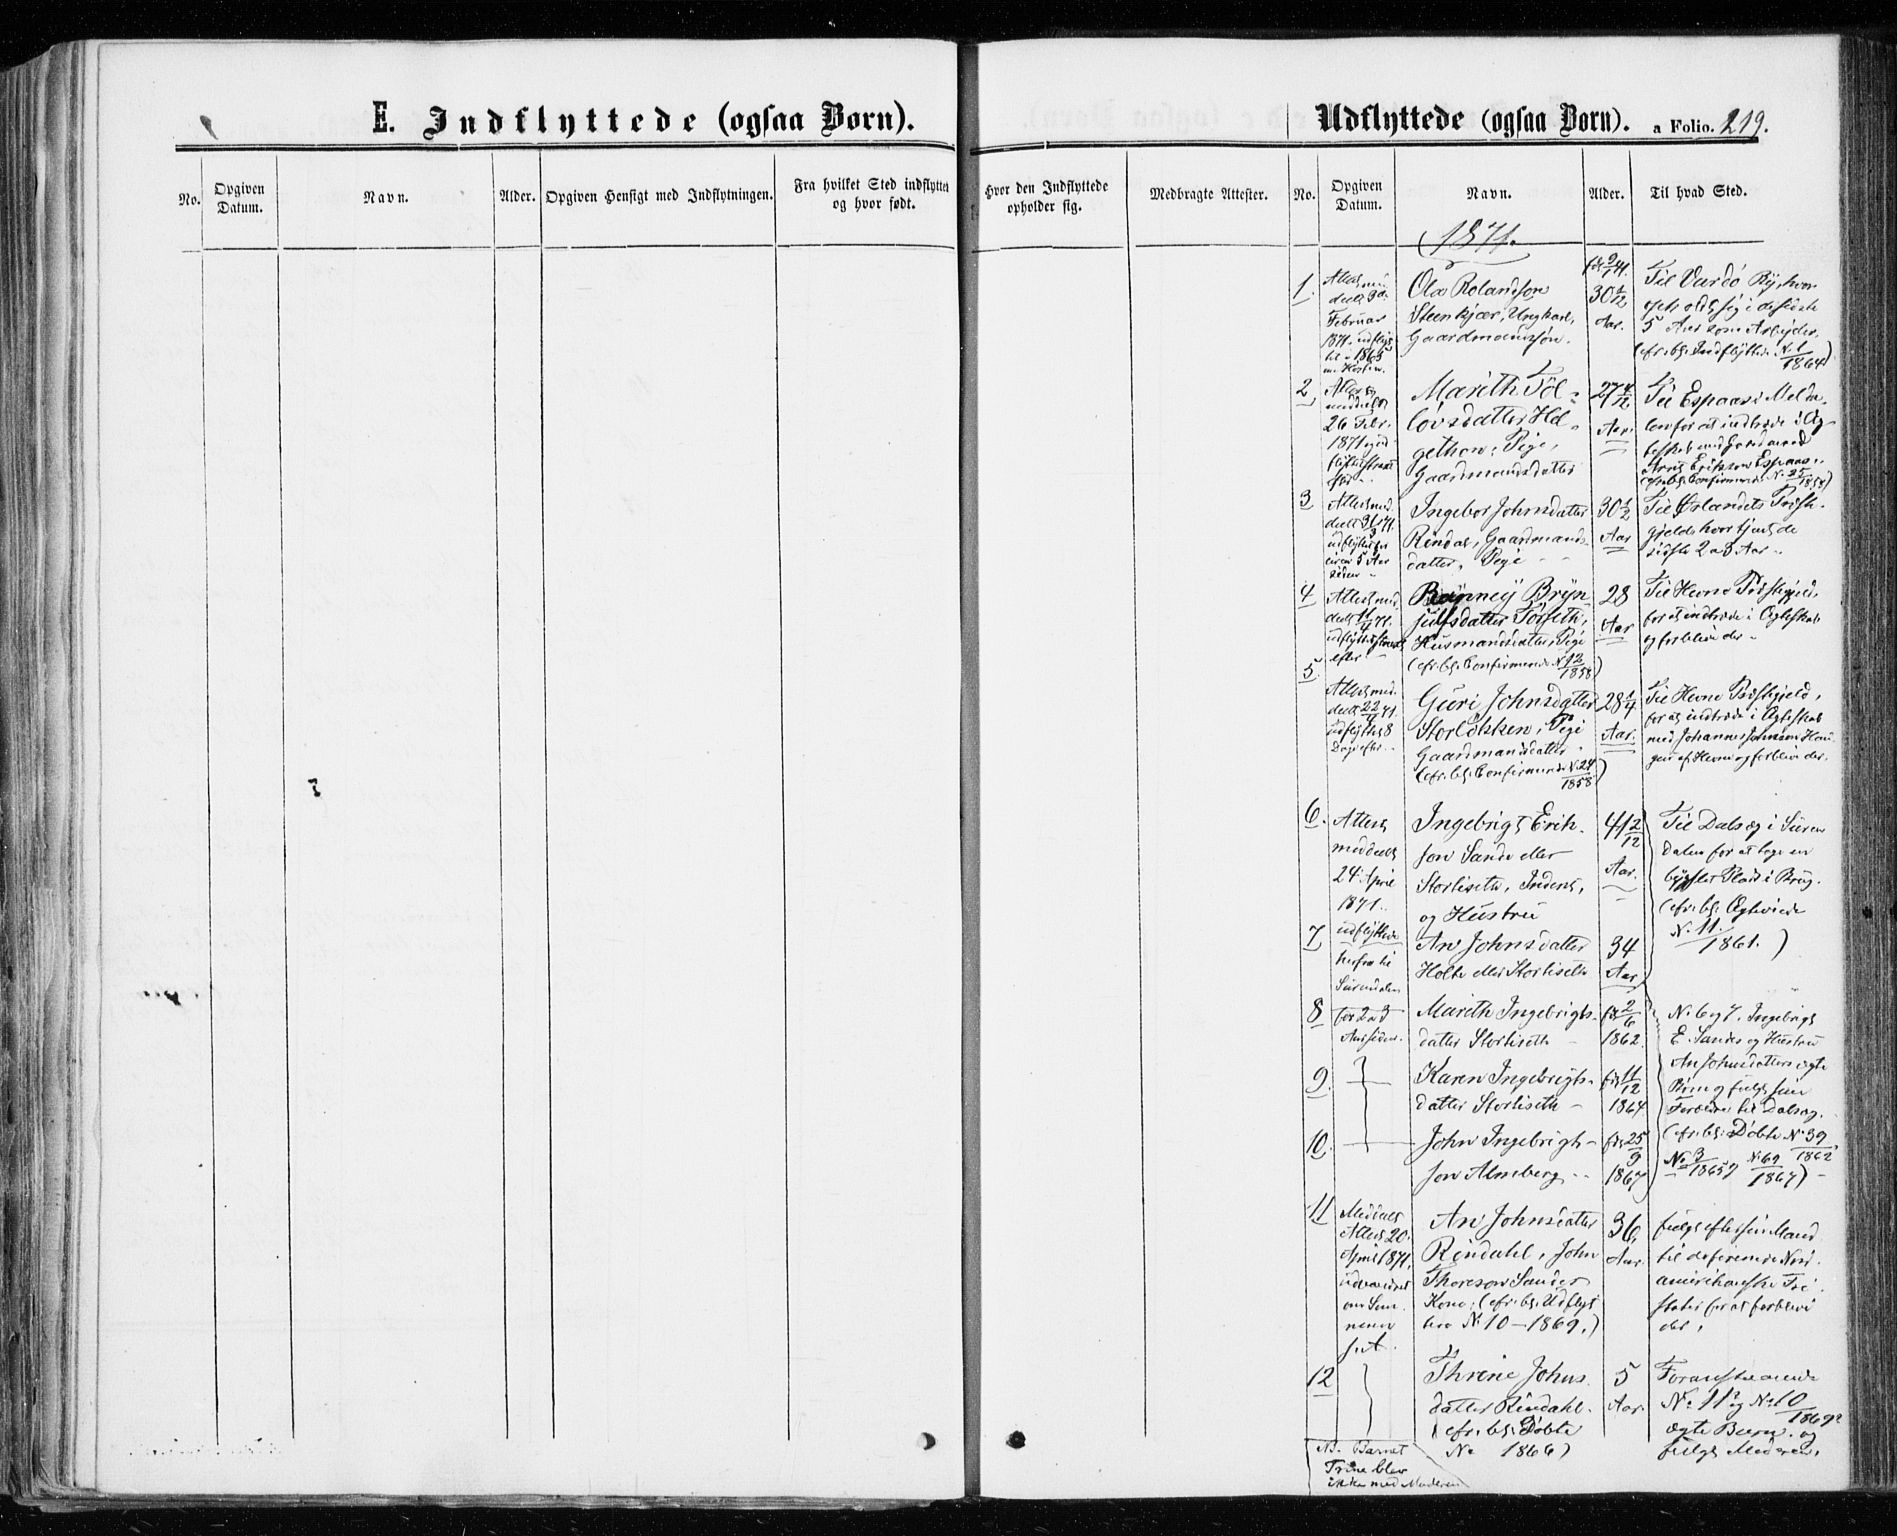 E. Indflyttede (ogsaa Børn).
Udflyttede (ogsaa Børn). a Folio. 219.
No.
Opgiven Datum.
Navn.
Alder.
Opgiven Hensigt med Indflytningen.
Fra hvilket Sted indflyttet og hvor født.
Hvor den Indflyttede opholder sig.
Medbragte Attester.
No.
Opgiven Datum.
Navn.
Alder.
Til hvad Sted.
1871.
1.
Februar
1871
Ola Rolandson
Steenkjær, Ungkarl,
Gaardmandssøn.
30 1/12
Aar.
Til Vardø By, hvor
5 Aar som Arbeider.
(cfr. bl. Indflyttede N. 1/1864)
2
26 Febr.
1871
Marith Tøl-
løvsdatter Hel-
gethon, Pige,
Gaardmandsdatter
27 4/12
Aar.
Til Espaas i Melda-
len for at indtræde i Æg-
teskab med Gaardmand
Arnt Erikson Espaas.
(cfr. bl. Confirmerede N. 25/1858)
3
Attest med-
deelt 31/3 71.
udflyttet for
circa 5 Aar
siden
Ingebor Johnsdatter
Rindal, Gaardmands-
datter, Pige
30 1/2
Aar
Til Ørlandets Præste-
gjeld hvor tjent de
sidste 2 a 3 Aar
4
Attest med-
deelt 11/4 71.
udflyttet strax
efter
Rønney Bryn-
julfsdatter Torseth,
Husmandsdatter, Pige
(cfr. bl. Confirmerede N. 12/1858)
28
Aar
Til Hevne Præstegjeld,
for at indtræde i Ægteskab
og forblive der
5
Attest med-
deelt 22/4 71.
udflyttet 8
Dage efter
Guri Johnsdatter
Storløkken, Pige
Gaardmandsdatter
(cfr. bl. Confirmerede N. 24/1858)
28 1/4
Aar.
Til Hevne Præstegjeld,
for at indtræde i Ægteskab
med Johannes Johnson Hau-
gen af Hevne og forblive der.
6.
Attest
meddeelt
24 April
1871.
Ingebrigt Erik-
son Sande eller
Storliseth, Inderst,
og Hustru
41 2/12
Aar.
Til Dalsæg i Suren-
dalen for at tage en
bygslet Plads i Brug.
(cfr. bl. Ægteviede
N. 11./1861.)
7
udflyttede
herfra til
Surendalen
An Johnsdatter
Holte eller Storliseth
34
Aar
8
for 2 a 3
Aar siden.
Marith Ingebrigts-
datter Storliseth
fdt 2/6
1862.
N. 6 og 7. Ingebrigt
E. Sandes og Hustru
An Johnsdatters ægte
Børn og fulgt sine
Forældre til Dalsæg.
(cfr. bl. Døbte N. 39/1862
N. 3/1865 og N. 69/1867)
9.
Karen Ingebrigts-
datter Storliseth
fdt 11/12
1864
10.
John Ingebrigt-
son Almberg
fdt 25/9
1867
11
Meddeelt
Attest 20
April 1871,
udvandret
om Som-
meren
s. A.
An Johnsdatter
Rindahl, John
Thoreson Sandes
Kone; (cfr. bl. Udflyt-
tere N. 10 – 1869.)
36
Aar.
fulgt efter sin Mand
til de forenede Nord-
amerikanske Fri-
stater for at forblive
der,
12
Thrine Johns-
datter Rindahl.
(cfr. bl. Døbte
N. 1866)
5
Aar.
Foranstaaende
No. 11 og No. 10/1869s
ægte Barn og
fulgt Moderen,
NB. Barnet
Trine blev
ikke med Moderen